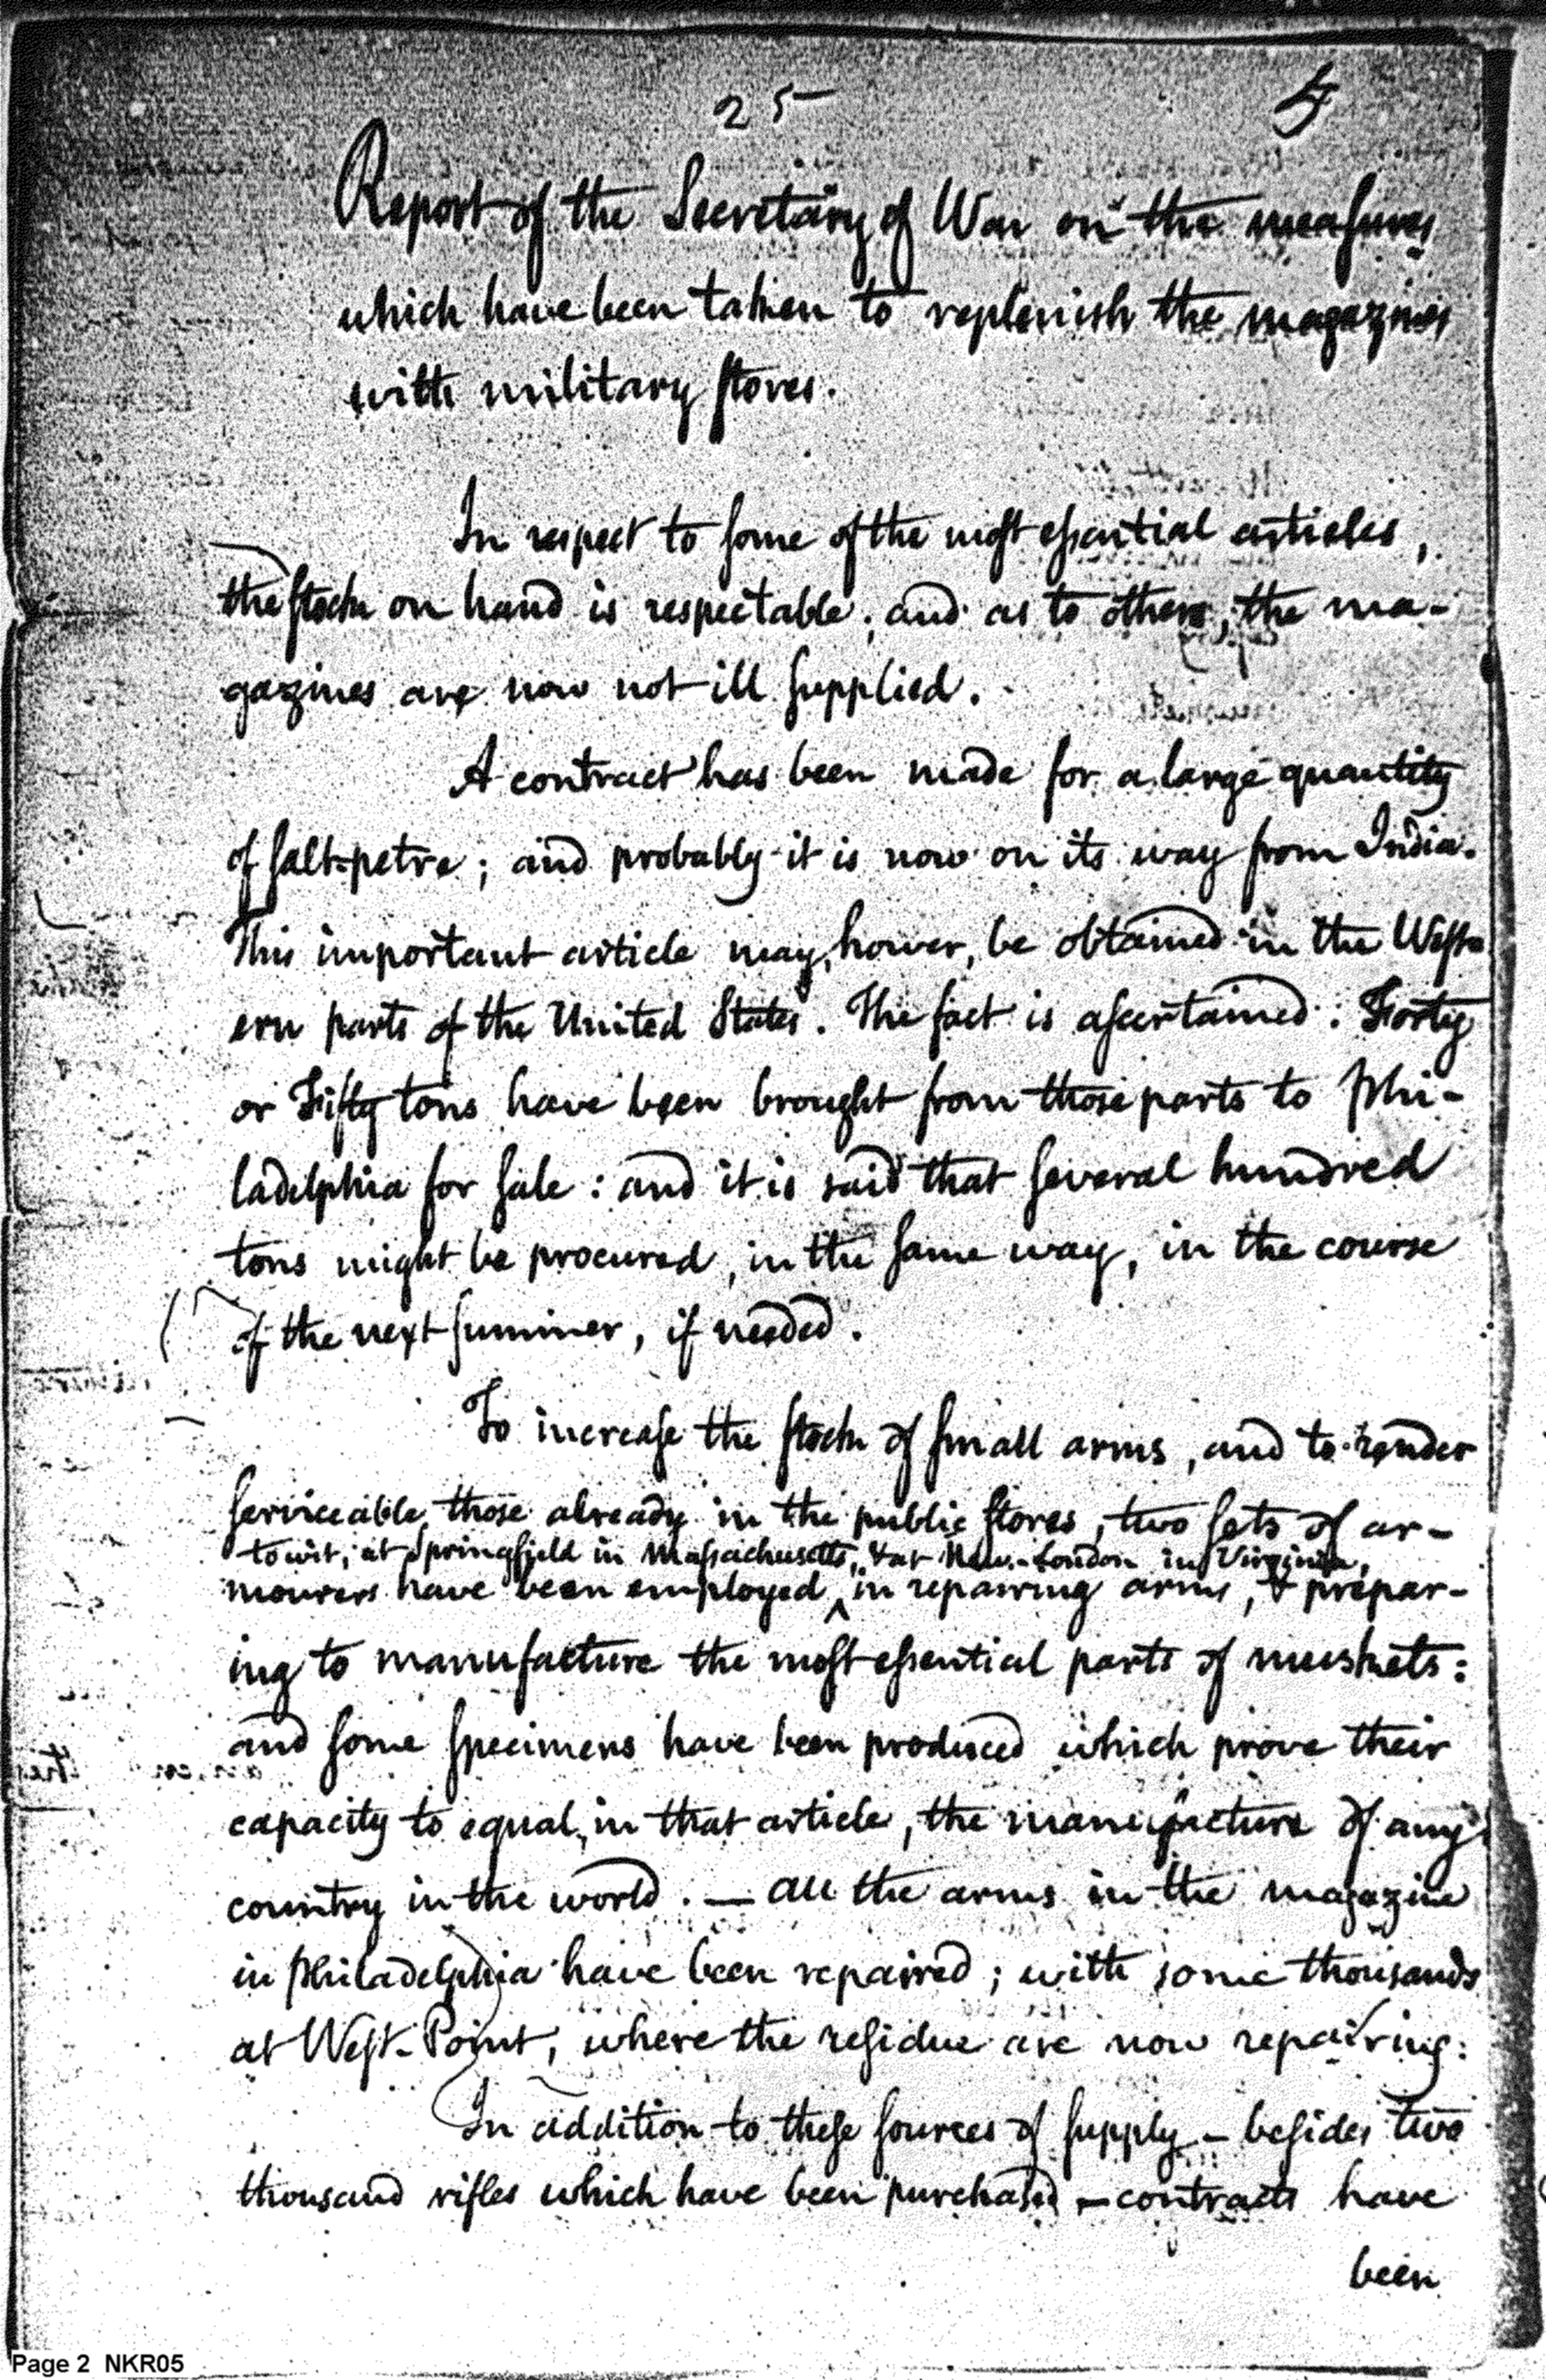 25
Report of the Secretary of War on the measures
which have been taken to replenish the magazines
with military stores.
In respect to some of the most essential articles,
the stock on hand is respectable; and as to others, the ma-
gazines are now not ill supplied.
A contract has been made for a large quantity
of salt-petre; and probably it is now on its way from India.
This important article may, hower, be obtained in the West-
ern parts of the United States. The fact is ascertained. Forty
or Fifty tons have been brought from those parts to Phi-
ladelphia for sale: and it is said that several hundred
tons might be procured, in the same way, in the course
of the next summer, if needed.
To increase the stock of small arms, and to render
serviceable those already in the public stores, two sets of ar-
to wit, at Springfield in Massachusetts, & at New-London in Virginia,
mourers have been employed ^ in repairing arms, & prepar-
ing to manufacture the most essential parts of muskets:
and some specimens have been produced which prove their
capacity to equal, in that article, the manufacture of any
country in the world. — All the arms in the magazine
in Philadelphia have been repaired; with some thousands
at West-Point, where the residue are now repairing.
In addition to these sources of supply – besides two
thousand rifles which have been purchased – contracts have
been
Page 2 NKR05